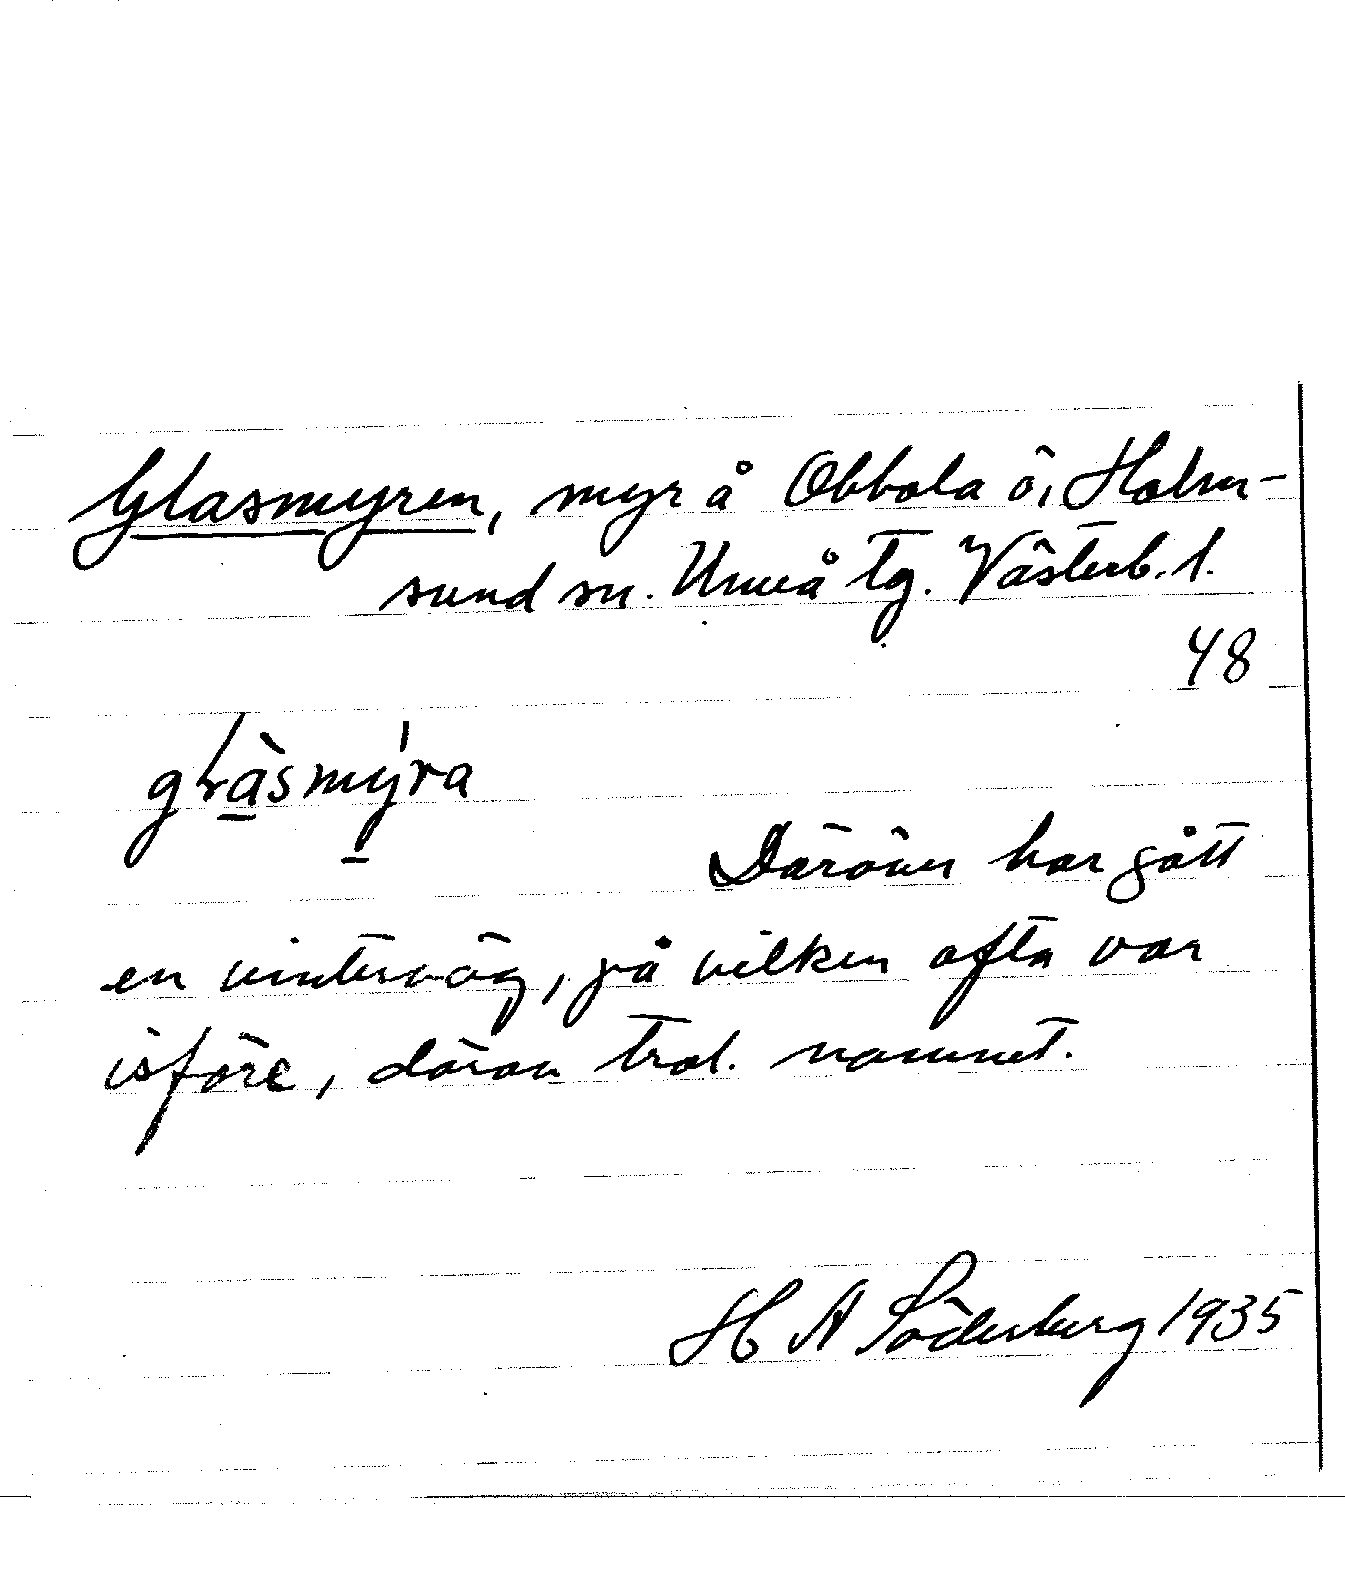 Glasmyren, myr å Obbola ö, Holm-
sund sn. Umeå tg. Västerb. l.
48
glàsmýra
Däröver har gått
en vinterväg, på vilken ofta var
isföre, därav trol. namnet.
H A Söderberg 1935